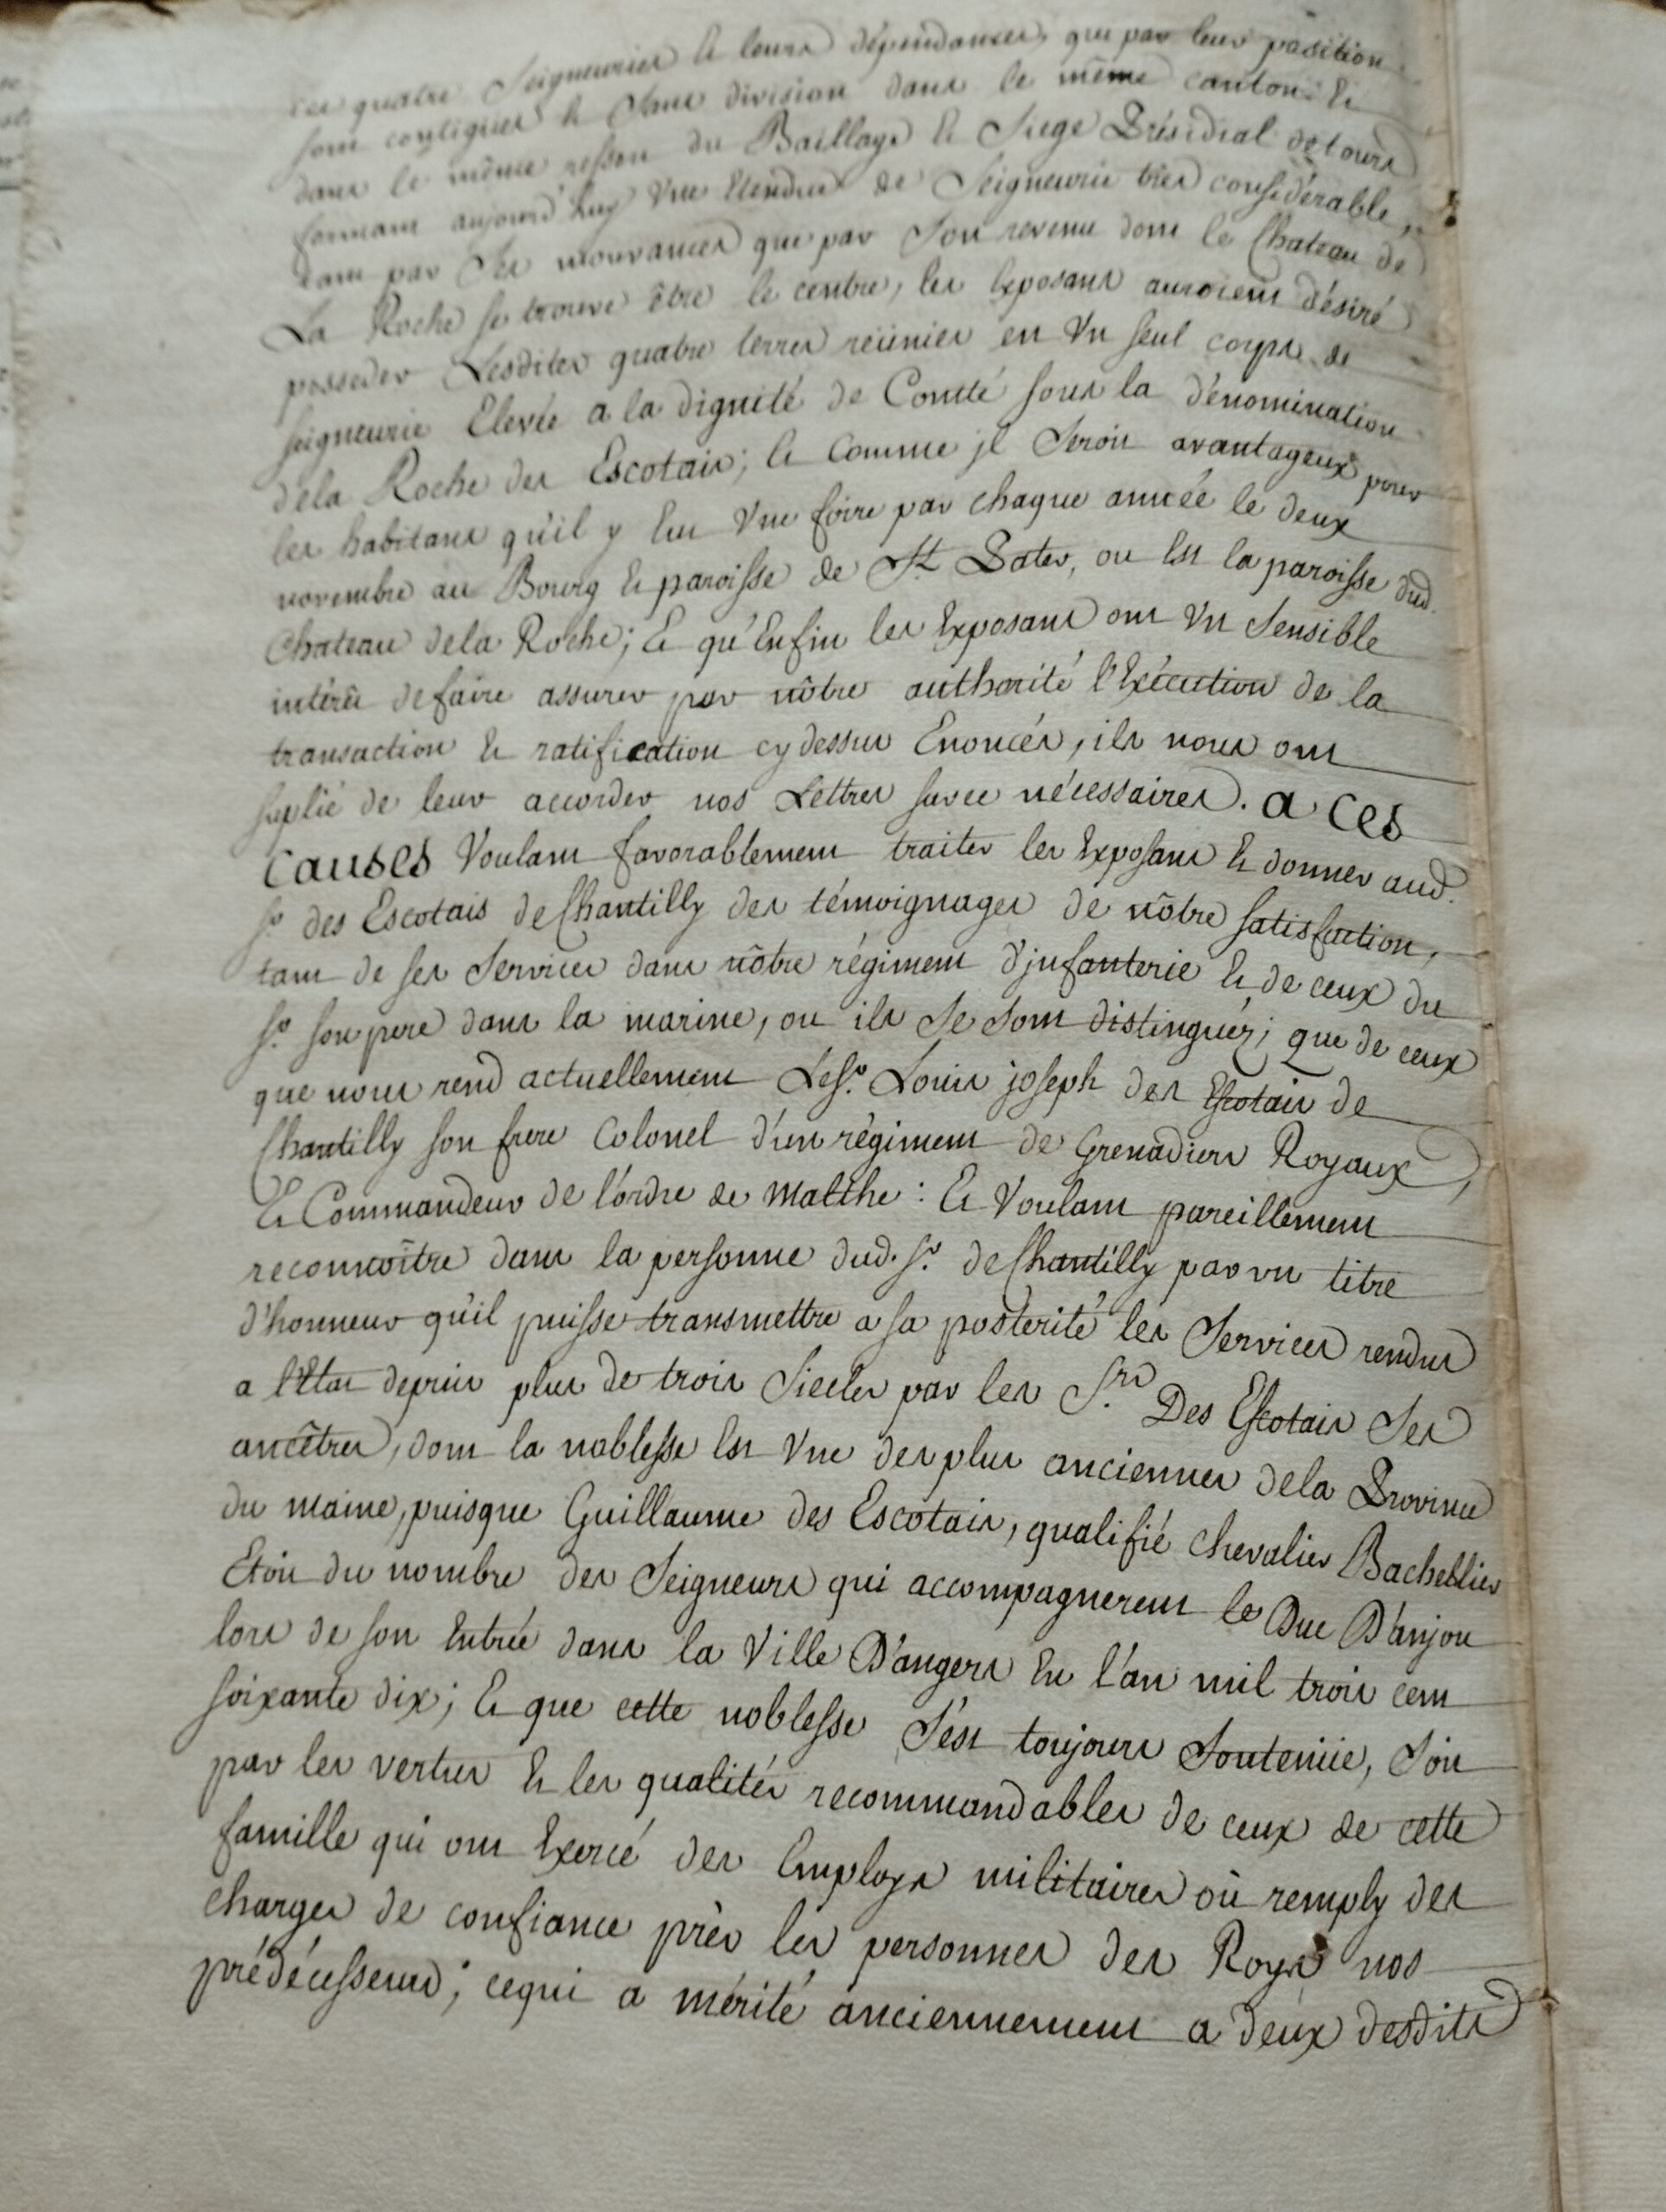 ces quatre Seigneuries et leurs dépendances, que par leur position
sont contigues et sans division dans le même canton et
dans le même ressort du Baillage et Siege Présidial de tours
formant aujourd'huy Une Etendue de Seigneurie très considérable,
tant par ses mouvances que par son revenu dont le Chateau de
La Roche se trouve être le centre, les Exposans auroient désiré
posseder Lesdites quatre terres réünies en Un seul corps de
seigneurie Elevée a la dignité de Comté sous la dénomination
de la Roche des Escotais; et comme jl seroit avantageux pour
les habitans qu'il y Eut Une foire par chaque année le deux
novembre au Bourg et paroisse de St. Pater, ou Est la paroisse dud.
Chateau de la Roche; Et qu'Enfin les Exposans ont Un Sensible
intérêt de faire assurer par nôtre authorité l'Exécution de la
transaction et ratification cy dessus Enoncés, ils nous ont
suplié de leur accorder nos Lettres sur ce nécessaires. a ces
causes Voulant favorablement traiter les Exposans et donner aud.
Sr. des Escotais de Chantilly des témoignages de nôtre satisfaction,
tant de ses Services dans nôtre régiment d'jnfanterie et de ceux du
Sr. son pere dans la marine, ou ils se sont distinguéz; que de ceux
que nous rend actuellement Le Sr. Louis joseph des Escotais de
Chantilly son frere Colonel d'un régiment de Grenadiers Royaux,
Et Commandeur de l'ordre de Malthe : Et Voulant pareillement
reconnoître dans la personne dud. Sr. de Chantilly par un titre
d'honneur qu'il puisse transmettre a sa posterité les Services rendus
a l'Etat depuis plus de trois Siecles par les Srs. Des Escotais Ses
ancêtres, dont la noblesse Est Une des plus anciennes de la Province
du maine, puisque Guillaume des Escotais, qualifié Chevalier Bachellier
Etoit du nombre des Seigneurs qui accompagnerent le Duc D'anjou
lors de son Entrée dans la Ville D'angers En l'an mil trois cent
soixante dix; Et que cette noblesse s'est toujours Soutenüe, Soit
par les vertus et les qualités recommandables de ceux de cette
famille qui ont Exercé des Employs militaires où remply des
charges de confiance près les personnes des Roys nos
prédécesseurs; ce qui a mérité anciennement a deux desdits